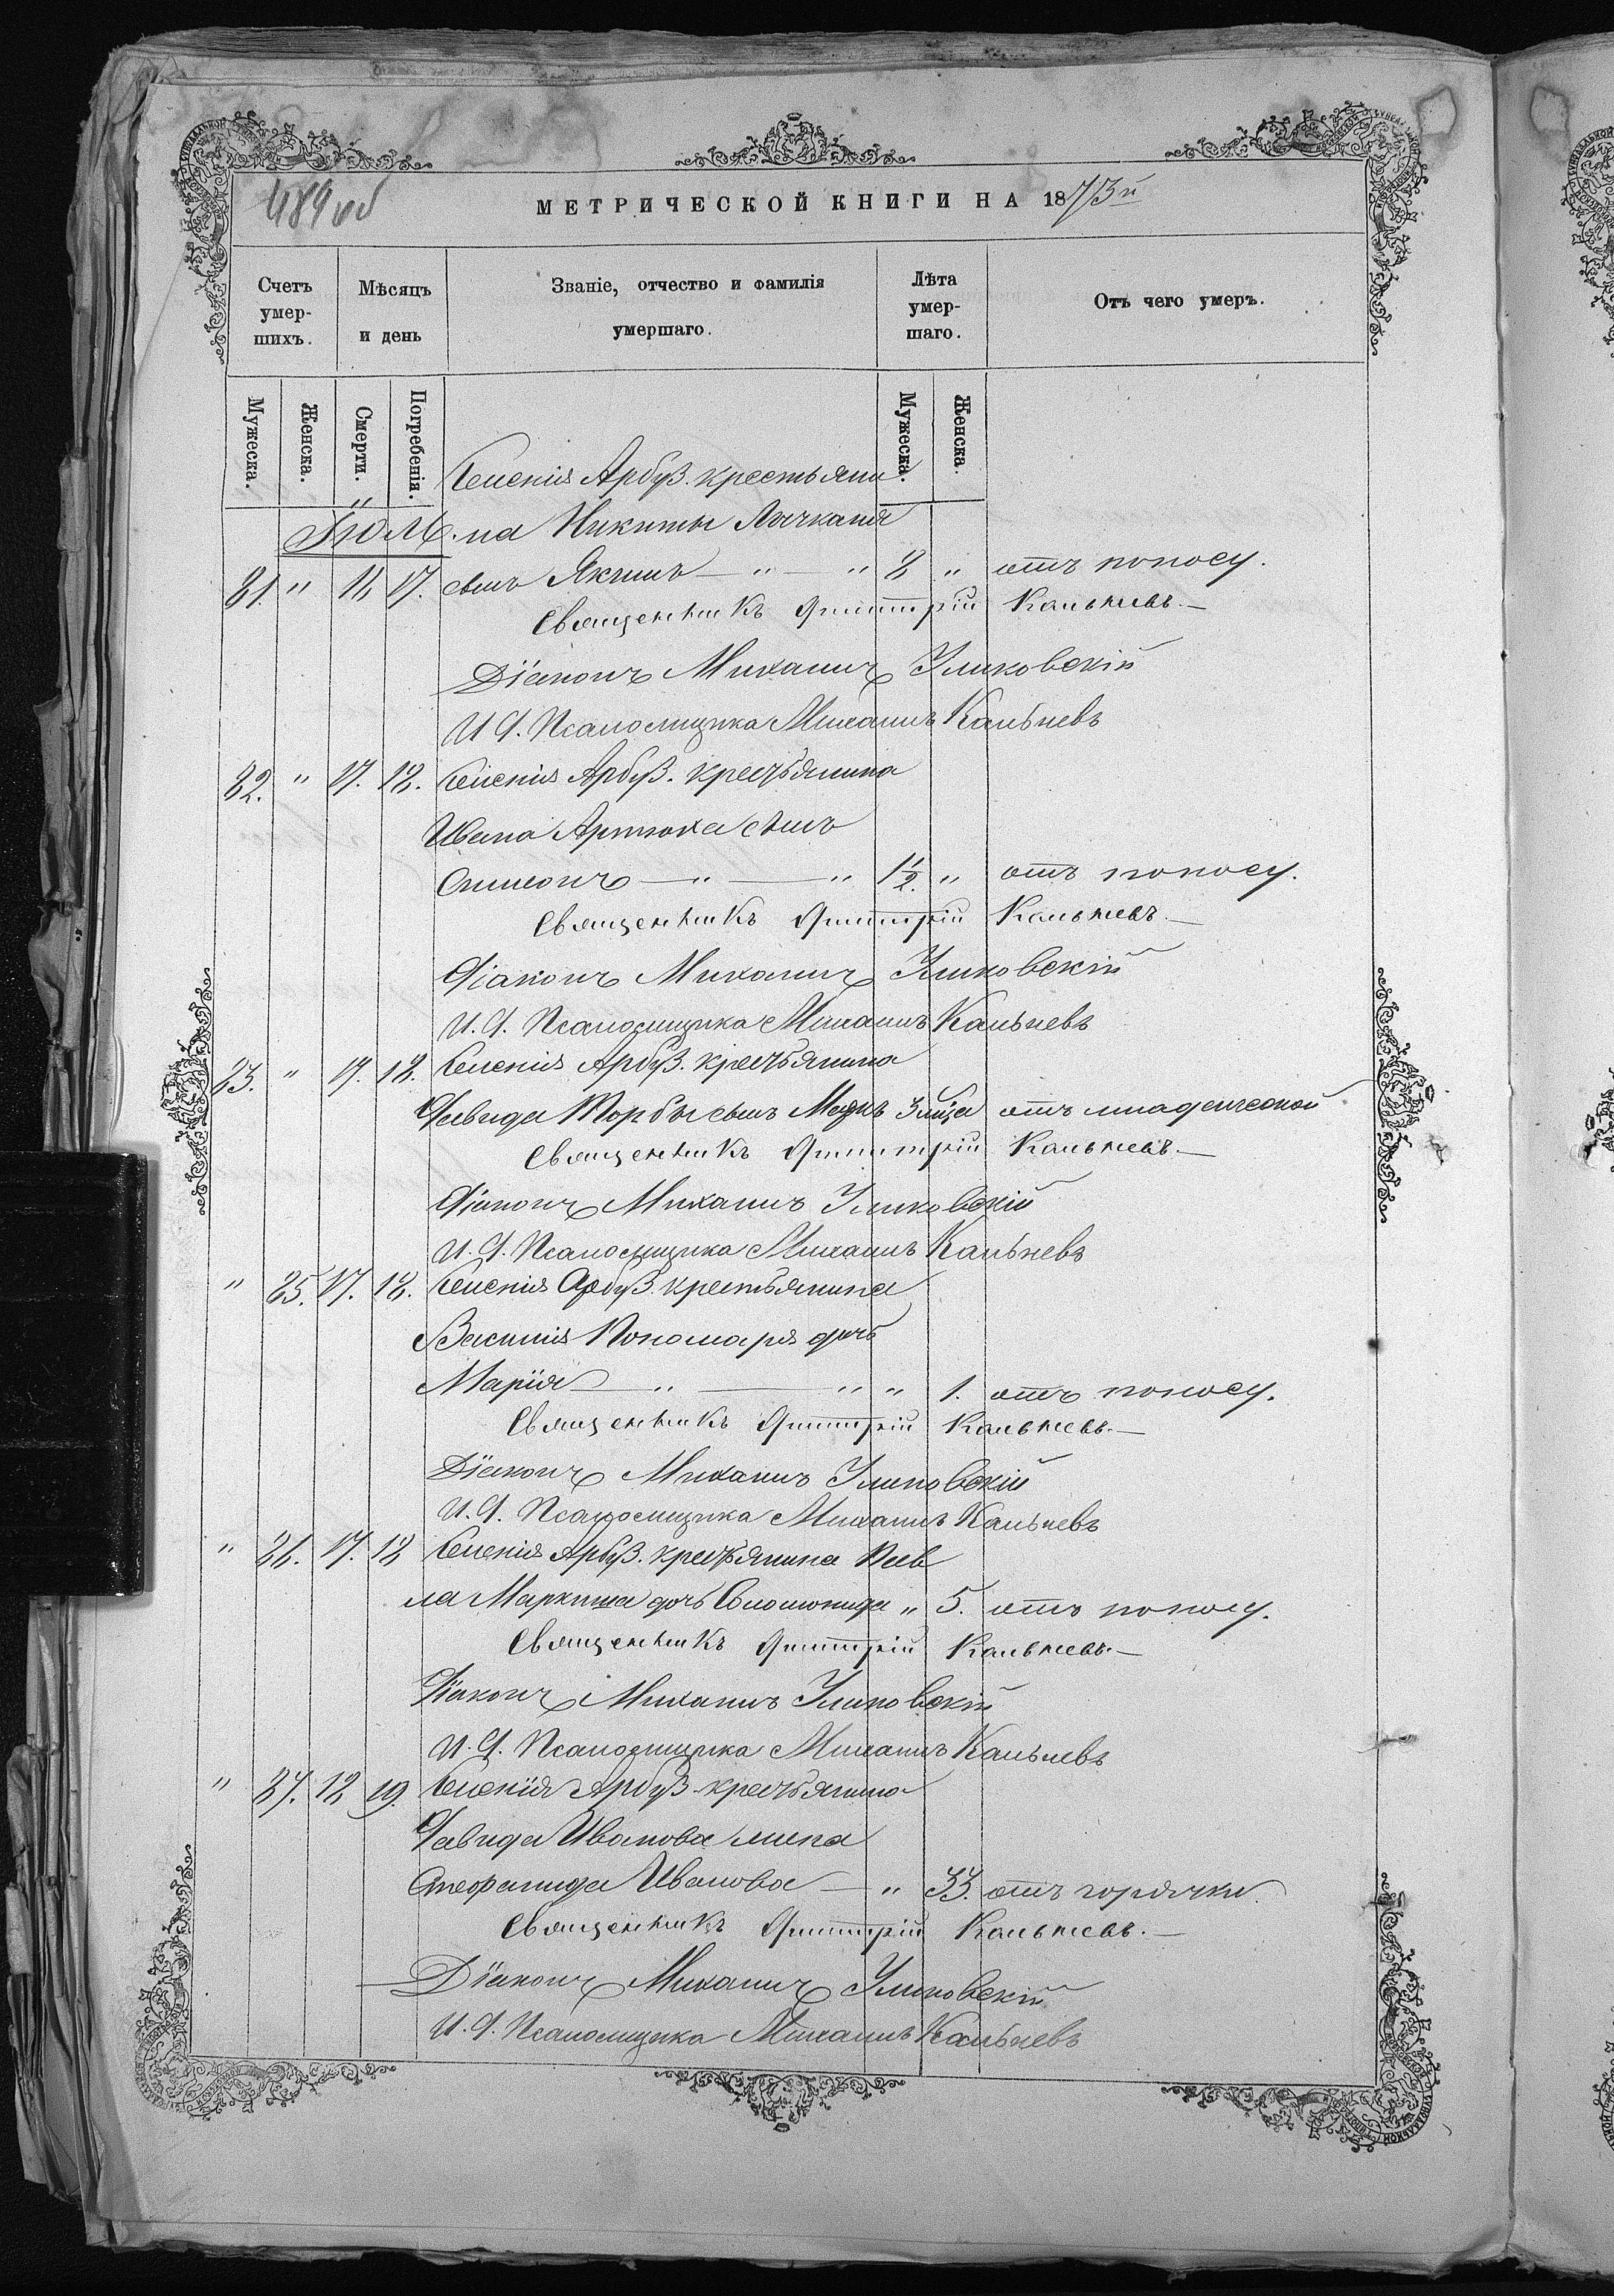 489 об
МЕТРИЧЕСКОЙ КНИГИ НА 1873й
Счетъ умер-шихъ.
Мѣсяцъ и день
Званіе, отчество и фамилія умершаго.
Лѣта умер-шаго.
Отъ чего умеръ.
Мужеска. Женска. Смерти. Погребенія. Мужеска. Женска.
Селенія Арбуз. крестьяни
Іюль. на Никиты
81. " 17. сынъ Якимъ — " — " 8 " отъ поносу.
Священникъ Димитрій Кальневъ. —
Діаконъ Михаилъ
И. Д. Псаломщика Михаилъ Кальневъ
82. " 17. 18. Селенія Арбуз. крестьянина
Ивана Артюха сынъ
Симеонъ — " — " 1 1/2. " отъ поносу.
Священникъ Димитрій Кальневъ. —
Діаконъ Михаилъ
И. Д. Псаломщика Михаилъ Кальневъ
83. " 17. 18. Селенія Арбуз. крестьянина
Давида Торбы сынъ отъ младенческой
Священникъ Димитрій Кальневъ. —
Діаконъ Михаилъ
И. Д. Псаломщика Михаилъ Кальневъ
" 85. 17. 18. Селенія Арбуз. крестьянина
Василія Пономаря дочь
Марія — " — " " 1. отъ поносу.
Священникъ Димитрій Кальневъ. —
Діаконъ Михаилъ
И. Д. Псаломщика Михаилъ Кальневъ
" 86. 17. 18 Селенія Арбуз. крестьянина Пав
ла дочь Соломонида " 5. отъ поносу.
Священникъ Димитрій Кальневъ. —
Діаконъ Михаилъ
И. Д. Псаломщика Михаилъ Кальневъ
" 87. 18 19. Селенія Арбуз. крестьянина
Давида Иванова жена
Стефанида Иванова — " 33. отъ горячки.
Священникъ Димитрій Кальневъ. —
Діаконъ Михаилъ
И. Д. Псаломщика Михаилъ Кальневъ